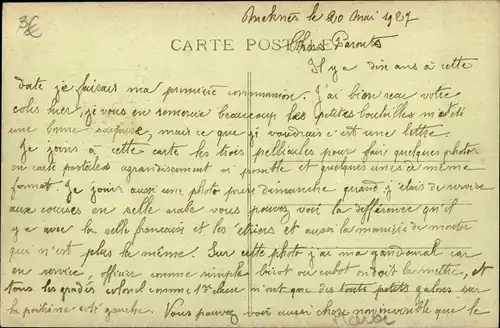 3€
Meknès le 20 mai 1927
CARTE POSTALE
Chers Parents
Il y a dix ans à cette
date je faisais ma première communion. J'ai bien reçu votre
colis hier, je vous en remercie beaucoup les petites bouteilles m'a été
une bonne surprise, mais ce que je voudrais c'est une lettre.
Je joins à cette carte les trois pellicules pour fair quelques photos
en carte postales agrandissement si possible et quelques unes à même
format. Je joins aussi une photo prise dimanche quand j'étais de service
aux courses en selle arabe vous pouvez voir la différence qu'il
y a avec la selle francaise et les étriers et aussi la manière de monter
qui n'est plus la même. Sur cette photo j'ai ma gandourah car
en service, officier comme simple ou cabot on doit la mettre, et
tous les gradés colonel comme 1re classe n'ont que des touts petits galons sur
la poitrine coté gauche. Vous pouvez voir aussi chose que le
Maroc